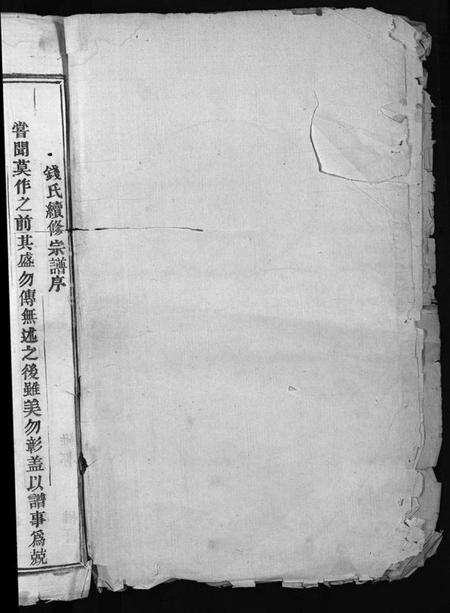 錢氏續修宗譜序
嘗聞莫作之前其盛勿傳無述之後雖美勿彰盖以譜事爲兢